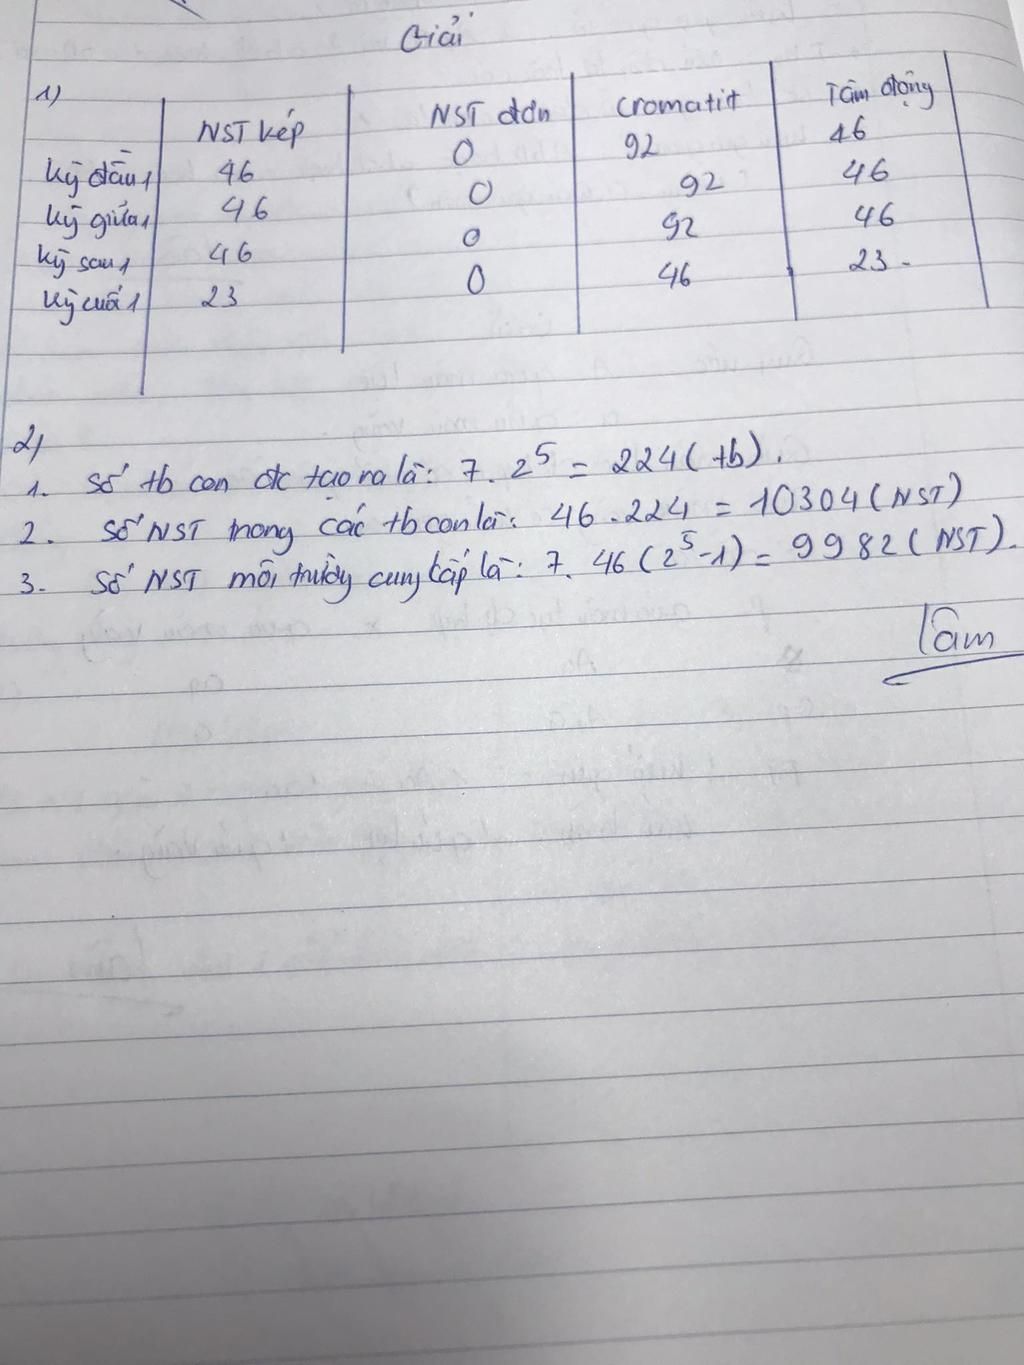 Giải
1)
NST kép NST đơn cromatit Tâm động
Kỳ đầu 1 46 0 92 46
Kỳ giữa 1 46 0 92 46
Kỳ sau 1 46 0 92 46
Kỳ cuối 1 23 0 46 23
2)
1. Số tb con đc tạo ra là: 7. 2^5 = 224 (tb).
2. Số NST trong các tb con là: 46 . 224 = 10304 (NST)
3. Số NST môi trường cung cấp là: 7. 46 (2^5-1) = 9982 (NST).
Tâm